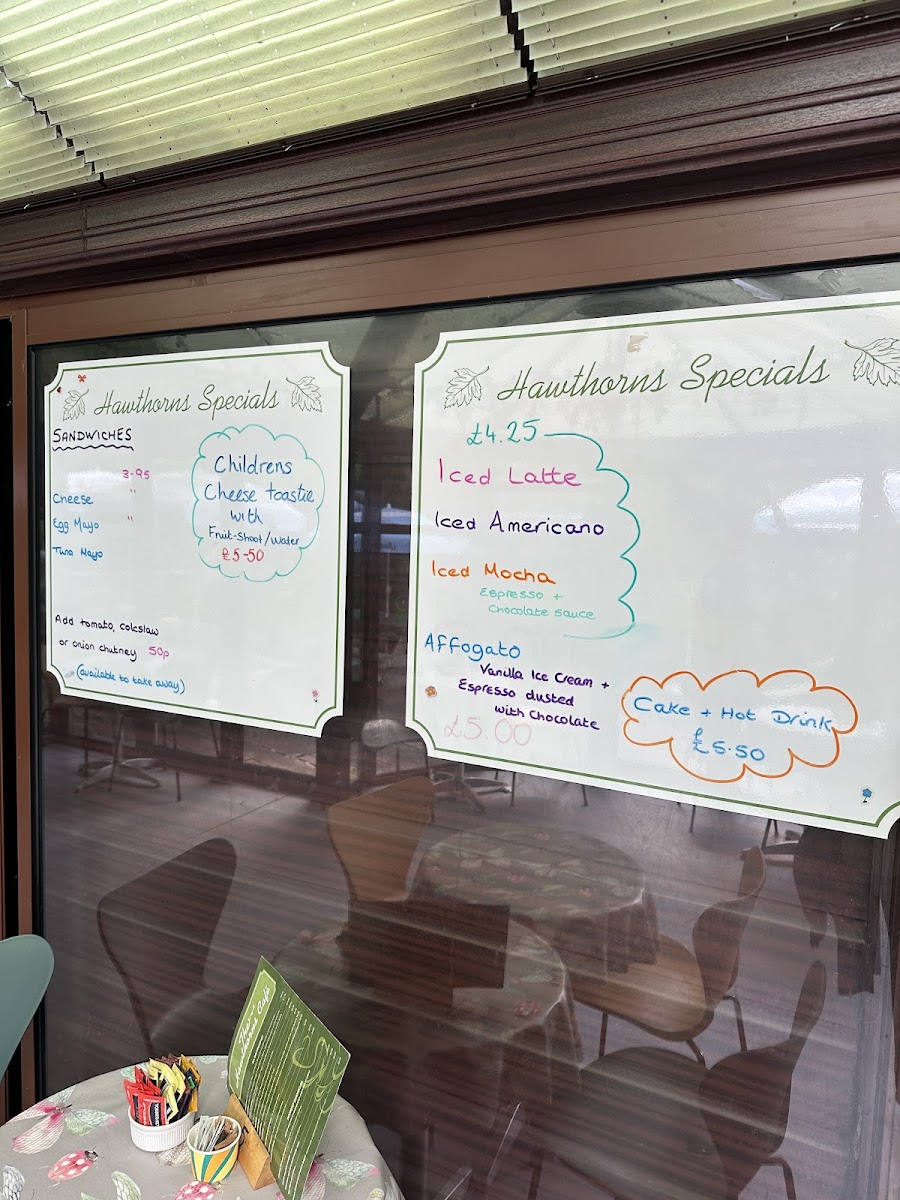 Hawthorns Specials
SANDWICHES
3-95
Cheese "
Egg Mayo "
Tuna Mayo
Childrens
Cheese toastie
with
Fruit-Shoot/Water
£5-50
Add tomato, colslaw
or onion chutney 50p
(available to take away)
Hawthorns Specials
£4.25
Iced Latte
Iced Americano
Iced Mocha
Espresso +
Chocolate sauce
Affogato
Vanilla Ice Cream +
Espresso dusted
with Chocolate
£5.00
Cake + Hot Drink
£5.50
The
Hawthorns Café